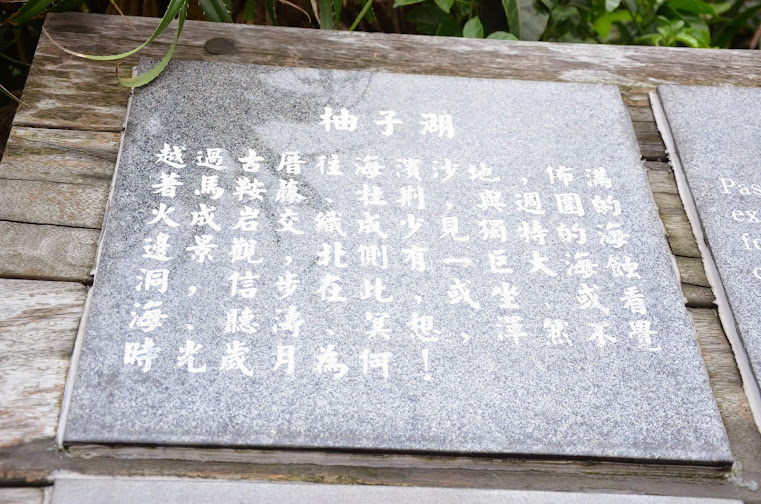 柚子湖
越過古厝往海濱沙地，佈滿
著馬鞍藤、牡荊，與週圍的
火成岩交織成少見獨特的海
邊景觀，北側有一巨大海蝕
洞，信步在此、或坐或看
海、聽濤、冥想，渾然不覺
時光歲月為何！